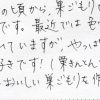 の頃から、巣ごもり
です。最近では色
べていますが、やっぱ
好きです！(栗きんとん
おいしい巣ごもりを作